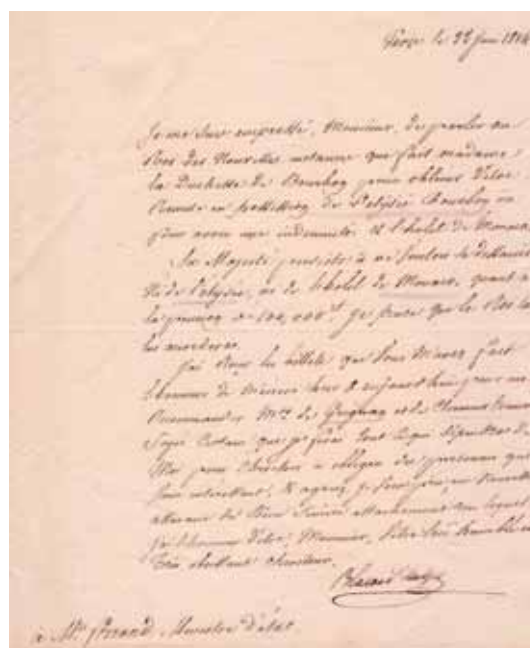 Paris le 22 juin 1814
Je me suis empressé, Monsieur, de parler au
Roi des nouvelles instances que fait madame
la Duchesse de Bourbon pour obtenir d'être
remise en possession de l'elysée Bourbon ou
pour avoir une indemnité et l'hotel de Monaco.
Sa Majesté persiste à ne vouloir se
de l'elysée, ni de l'hotel de Monaco, quant
100,000 je pense que le Roi
les accordera.
J'ai reçu les billets que vous m'avez fait
l'honneur de m'écrire hier & aujourd'hui pour me
recommander Mrs. de et de Clermont
Soyez certain que je ferai tout ce qui dépendra de
Moi pour chercher à obliger des personnes qui
vous intéressent, & agréez, je vous prie, en
du bien sincère attachement avec lequel
j'ai l'honneur d'être, Monsieur, Votre très humble et
très obéissant serviteur.
Blacas d'aulps
à Mr. ferrand, Ministre d'état